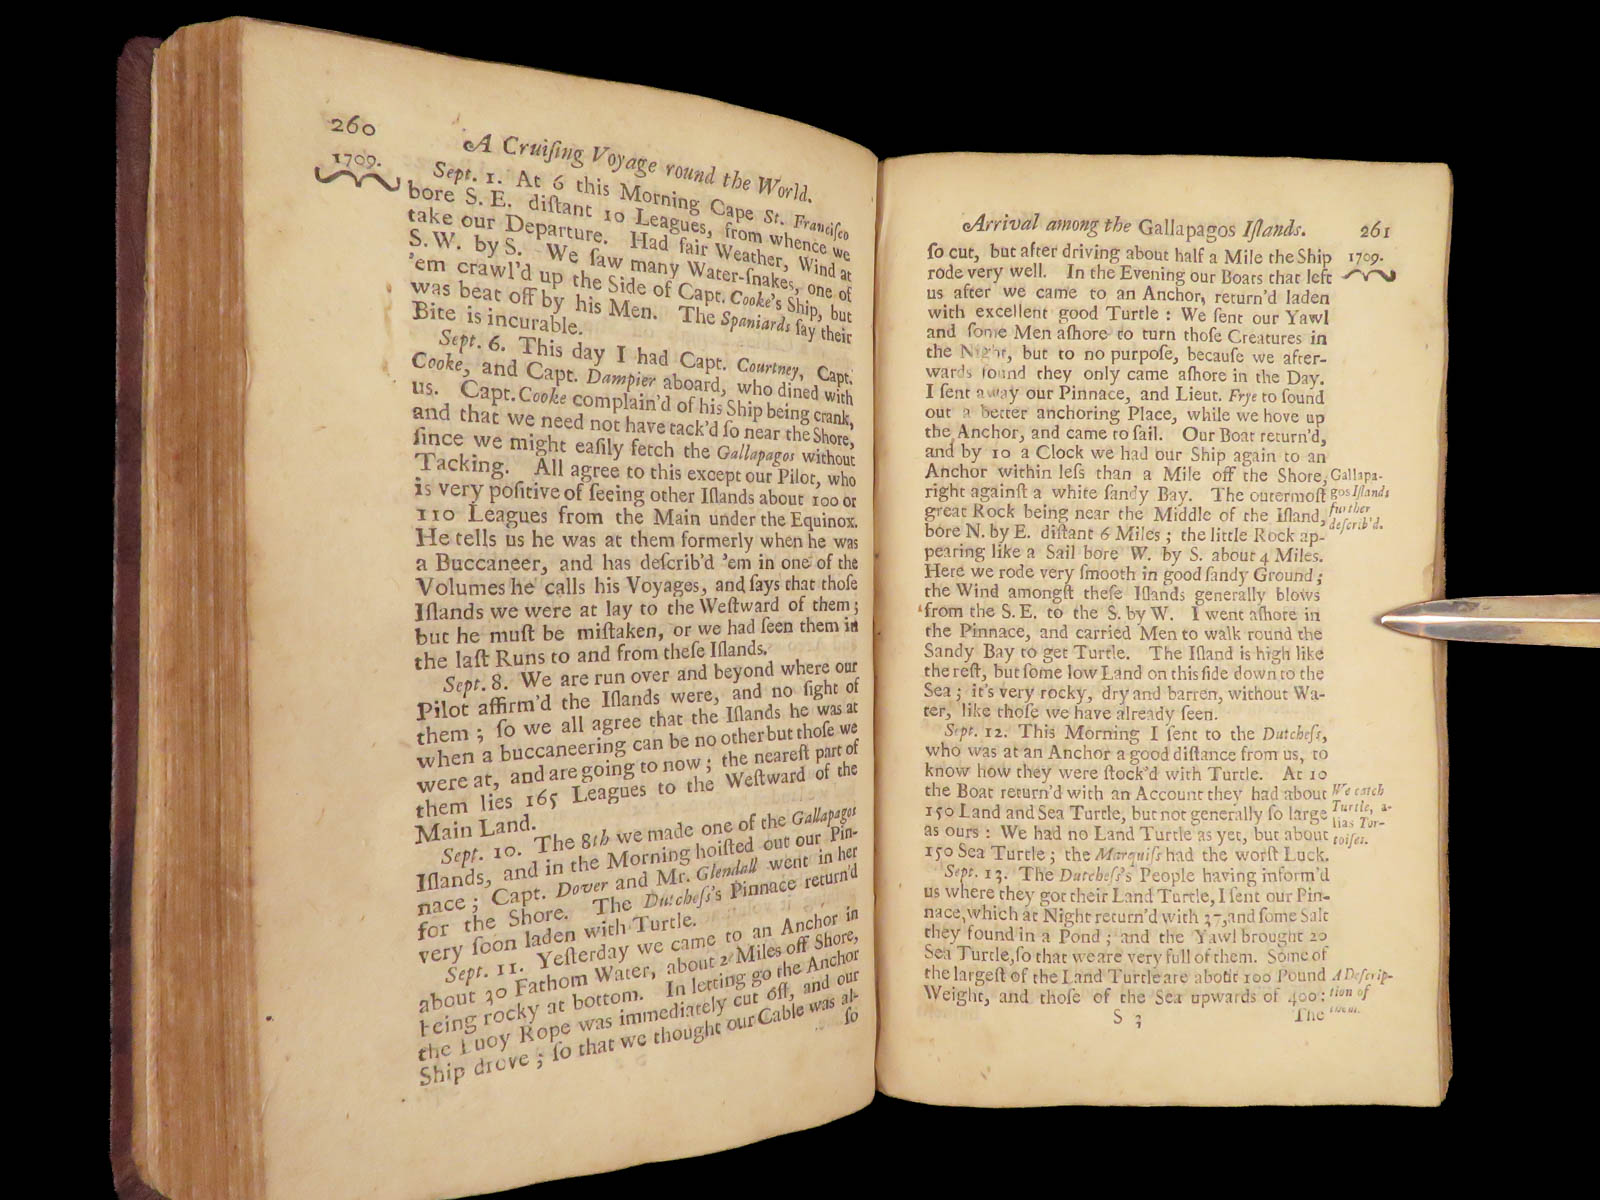 260
A Cruiſing Voyage round the World.
1709.
Sept. 1. At 6 this Morning Cape St. Franciſco
bore S. E. diſtant 10 Leagues, from whence we
take our Departure. Had fair Weather, Wind at
S. W. by S. We ſaw many Water-ſnakes, one of
'em crawl'd up the Side of Capt. Cooke's Ship, but
was beat off by his Men. The Spaniards ſay their
Bite is incurable.
Sept. 6. This day I had Capt. Courtney, Capt.
Cooke, and Capt. Dampier aboard, who dined with
us. Capt. Cooke complain'd of his Ship being crank,
and that we need not have tack'd ſo near the Shore,
ſince we might eaſily fetch the Gallapagos without
Tacking. All agree to this except our Pilot, who
is very poſitive of ſeeing other Iſlands about 100 or
110 Leagues from the Main under the Equinox.
He tells us he was at them formerly when he was
a Buccaneer, and has deſcrib'd 'em in one of the
Volumes he calls his Voyages, and ſays that thoſe
Iſlands we were at lay to the Weſtward of them;
but he muſt be miſtaken, or we had ſeen them in
the laſt Runs to and from theſe Iſlands.
Sept. 8. We are run over and beyond where our
Pilot affirm'd the Iſlands were, and no ſight of
them; ſo we all agree that the Iſlands he was at
when a buccaneering can be no other but thoſe we
were at, and are going to now; the neareſt part of
them lies 165 Leagues to the Weſtward of the
Main Land.
Sept. 10. The 8th we made one of the Gallapagos
Iſlands, and in the Morning hoiſted out our Pin-
nace; Capt. Dover and Mr. Glendall went in her
for the Shore. The Dutcheſs's Pinnace return'd
very ſoon laden with Turtle.
Sept. 11. Yeſterday we came to an Anchor in
about 30 Fathom Water, about 2 Miles off Shore,
being rocky at bottom. In letting go the Anchor
the Buoy Rope was immediately cut off, and our
Ship drove; ſo that we thought our Cable was al-
ſo
Arrival among the Gallapagos Iſlands. 261
1709.
ſo cut, but after driving about half a Mile the Ship
rode very well. In the Evening our Boats that left
us after we came to an Anchor, return'd laden
with excellent good Turtle: We ſent our Yawl
and ſome Men aſhore to turn thoſe Creatures in
the Night, but to no purpoſe, becauſe we after-
wards found they only came aſhore in the Day.
I ſent away our Pinnace, and Lieut. Frye to ſound
out a better anchoring Place, while we hove up
the Anchor, and came to ſail. Our Boat return'd,
and by 10 a Clock we had our Ship again to an
Anchor within leſs than a Mile off the Shore,
right againſt a white ſandy Bay. The outermoſt
great Rock being near the Middle of the Iſland,
bore N. by E. diſtant 6 Miles; the little Rock ap-
pearing like a Sail bore W. by S. about 4 Miles.
Here we rode very ſmooth in good ſandy Ground;
the Wind amongſt theſe Iſlands generally blows
from the S. E. to the S. by W. I went aſhore in
the Pinnace, and carried Men to walk round the
Sandy Bay to get Turtle. The Iſland is high like
the reſt, but ſome low Land on this ſide down to the
Sea; it's very rocky, dry and barren, without Wa-
ter, like thoſe we have already ſeen.
Gallapa-
gos Iſlands
further
deſcrib'd.
Sept. 12. This Morning I ſent to the Dutcheſs,
who was at an Anchor a good diſtance from us, to
know how they were ſtock'd with Turtle. At 10
the Boat return'd with an Account they had about
150 Land and Sea Turtle, but not generally ſo large
as ours: We had no Land Turtle as yet, but about
150 Sea Turtle; the Marquiſs had the worſt Luck.
We catch
Turtle, a-
lias Tor-
toiſes.
Sept. 13. The Dutcheſs's People having inform'd
us where they got their Land Turtle, I ſent our Pin-
nace, which at Night return'd with 37, and ſome Salt
they found in a Pond; and the Yawl brought 20
Sea Turtle, ſo that we are very full of them. Some of
the largeſt of the Land Turtle are about 100 Pound
Weight, and thoſe of the Sea upwards of 400:
A Deſcrip-
tion of
them.
S 3
The